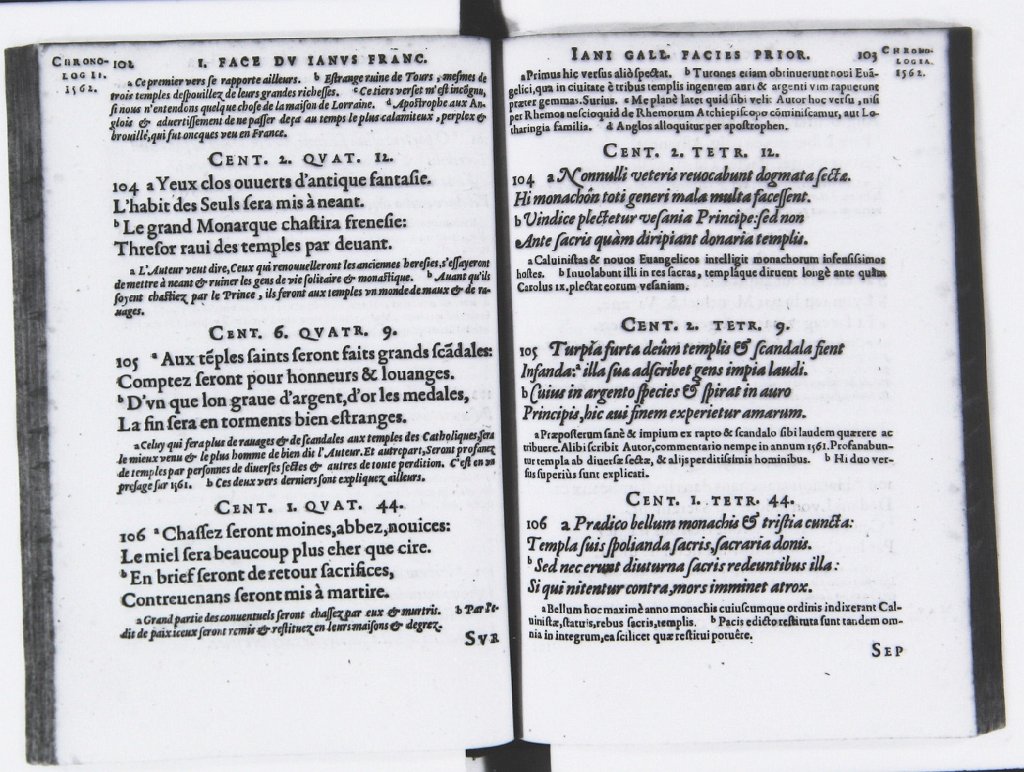 CHRONO-
LOGIE.
1562.
102 I. FACE DV IANVS FRANC.
a Ce premier vers se rapporte ailleurs. b Estrange ruine de Tours, mesmes de
trois temples despouillez de leurs grandes richesses. c Ce tiers verset m'est incognu,
si nous n'entendons quelque chose de la maison de Lorraine. d Apostrophe aux An-
glois & aduertissement de ne passer deça au temps le plus calamiteux, perplex &
brouillé, qui fut oncques veu en France.
CENT. 2. QVAT. 12.
104 a Yeux clos ouuerts d'antique fantasie.
L'habit des Seuls sera mis à neant.
b Le grand Monarque chastira frenesie:
Thresor raui des temples par deuant.
a L'Auteur veut dire, Ceux qui renouuelleront les anciennes heresies, s'essayeront
de mettre à neant & ruiner les gens de vie solitaire & monastique. b Auant qu'ils
soyent chastiez par le Prince, ils feront aux temples vn monde de maux & de ra-
uages.
CENT. 6. QVATR. 9.
105 a Aux tẽples saints seront faits grands scãdales:
Comptez seront pour honneurs & louanges.
b D'vn que lon graue d'argent, d'or les medales,
La fin sera en torments bien estranges.
a Celuy qui fera plus de rauages & de scandales aux temples des Catholiques, sera
le mieux venu & le plus homme de bien dit l'Auteur. Et autrepart, Seront profanez
de temples par personnes de diuerses sectes & autres de toute perdition. C'est en vn
presage sur 1561. b Ces deux vers derniers sont expliquez ailleurs.
CENT. 1. QVAT. 44.
106 a Chassez seront moines, abbez, nouices:
Le miel sera beaucoup plus cher que cire.
b En brief seront de retour sacrifices,
Contreuenans seront mis à martire.
a Grand partie des conuentuels seront chassez par eux & murtris. b Par l'e-
dit de paix iceux seront remis & restituez en leurs maisons & degrez.
SVR
IANI GALL. FACIES PRIOR. 103
CHRONO-
LOGIA.
1562.
a Primus hic versus aliò spectat. b Turones etiam obtinuerunt noui Euã-
gelici, qua in ciuitate è tribus templis ingentem auri & argenti vim rapuerunt
præter gemmas. Surius. c Me planè latet quid sibi velit Autor hoc versu, nisi
per Rhemos nescioquid de Rhemorum Archiepiscopo cõminiscamur, aut Lo-
tharingia familia. d Anglos alloquitur per apostrophen.
CENT. 2. TETR. 12.
104 a Nonnulli veteris reuocabunt dogmata sectæ.
Hi monachôn toti generi mala multa facessent.
b Vindice plectetur vesania Principe: sed non
Ante sacris quàm diripiant donaria templis.
a Caluinistas & nouos Euangelicos intelligit monachorum infensissimos
hostes. b Inuolabunt illi in res sacras, templaque diruent longè ante quàm
Carolus IX. plectat eorum vesaniam.
CENT. 2. TETR. 9.
105 Turpia furta deûm templis & scandala fient
Infanda: a illa sua adscribet gens impia laudi.
b Cuius in argento species & spirat in auro
Principis, hic æui finem experietur amarum.
a Præposterum sanè & impium ex rapto & scandalo sibi laudem quærere ac
tribuere. Alibi scribit Autor, commentario nempe in annum 1561. Profanabun-
tur templa ab diuersæ sectæ, & alijs perditissimis hominibus. b Hi duo ver-
sus superiùs sunt explicati.
CENT. 1. TETR. 44.
106 a Prædico bellum monachis & tristia cuncta:
Templa suis spolianda sacris, sacraria donis.
b Sed nec erunt diuturna sacris redeuntibus illa:
Si qui nitentur contra, mors imminet atrox.
a Bellum hoc maximè anno monachis cuiuscumque ordinis indixerant Cal-
uinistæ, statuis, rebus sacris, templis. b Pacis edicto restituta sunt tandem om-
nia in integrum, ea scilicet quæ restitui potuêre.
SEP